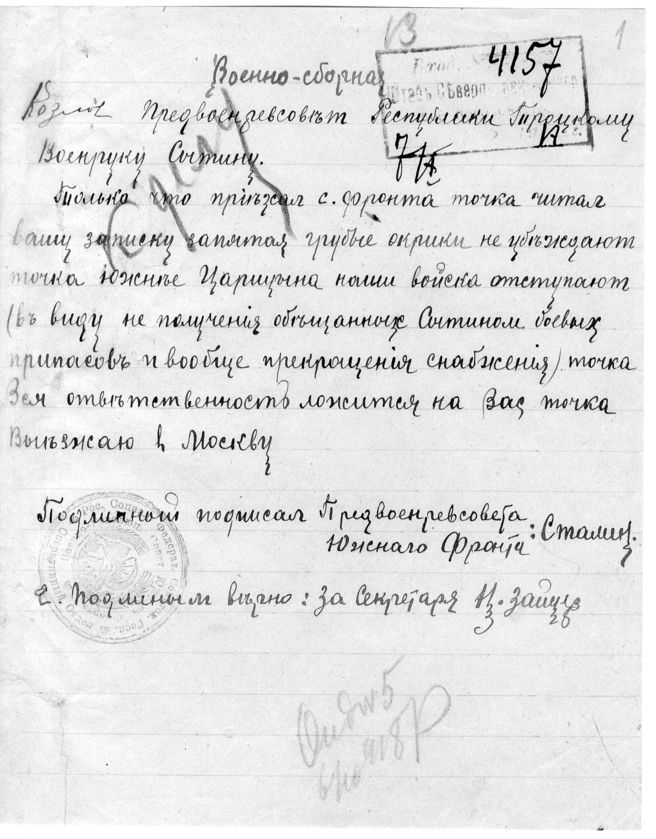 1
Военно-сборная
4157
Вход. №
Штабъ Сѣверо-
Козлов Предвоенревсовѣт Республики Троцкому
Военруку Сытину.
Только что пріѣхал с. фронта точка читал
вашу записку запятая грубые окрики не убѣждают
точка южнѣе Царицына наши войска отступают
(въ виду не полученія обѣщанных Сытином боевых
припасовъ и вообще прекращенія снабженія) точка
Вся отвѣтственность ложится на Вас точка
Выѣзжаю в Москву
Подлинный подписал Предвоенревсовета
Южнаго Фронта : Сталин.
С подлиным вѣрно: За Секретаря